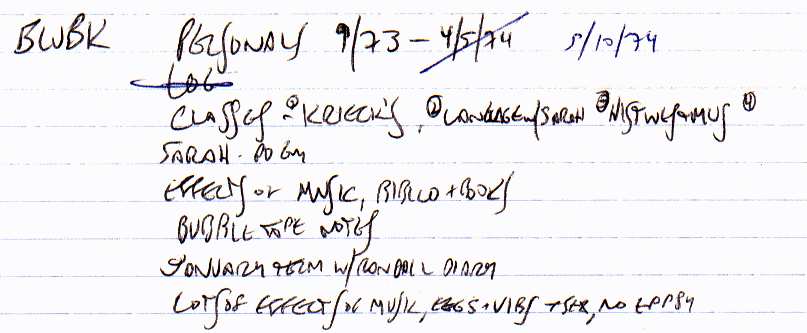 BWBK PERSONALS 9/73 – 4/5/74 5/10/74
LOG
CLASSES - KRIECK'S, ② LANGUAGE W/SARAH ③ HIST WEST MUS ④
SARAH - POEM
EFFECTS OF MUSIC, BIBLIO + BOOKS
BUBBLE TAPE NOTES
JANUARY TERM W/RANDALL DIARY
LOTS OF EFFECTS OF MUSIC, EEGS + VIBS + SEX, NO